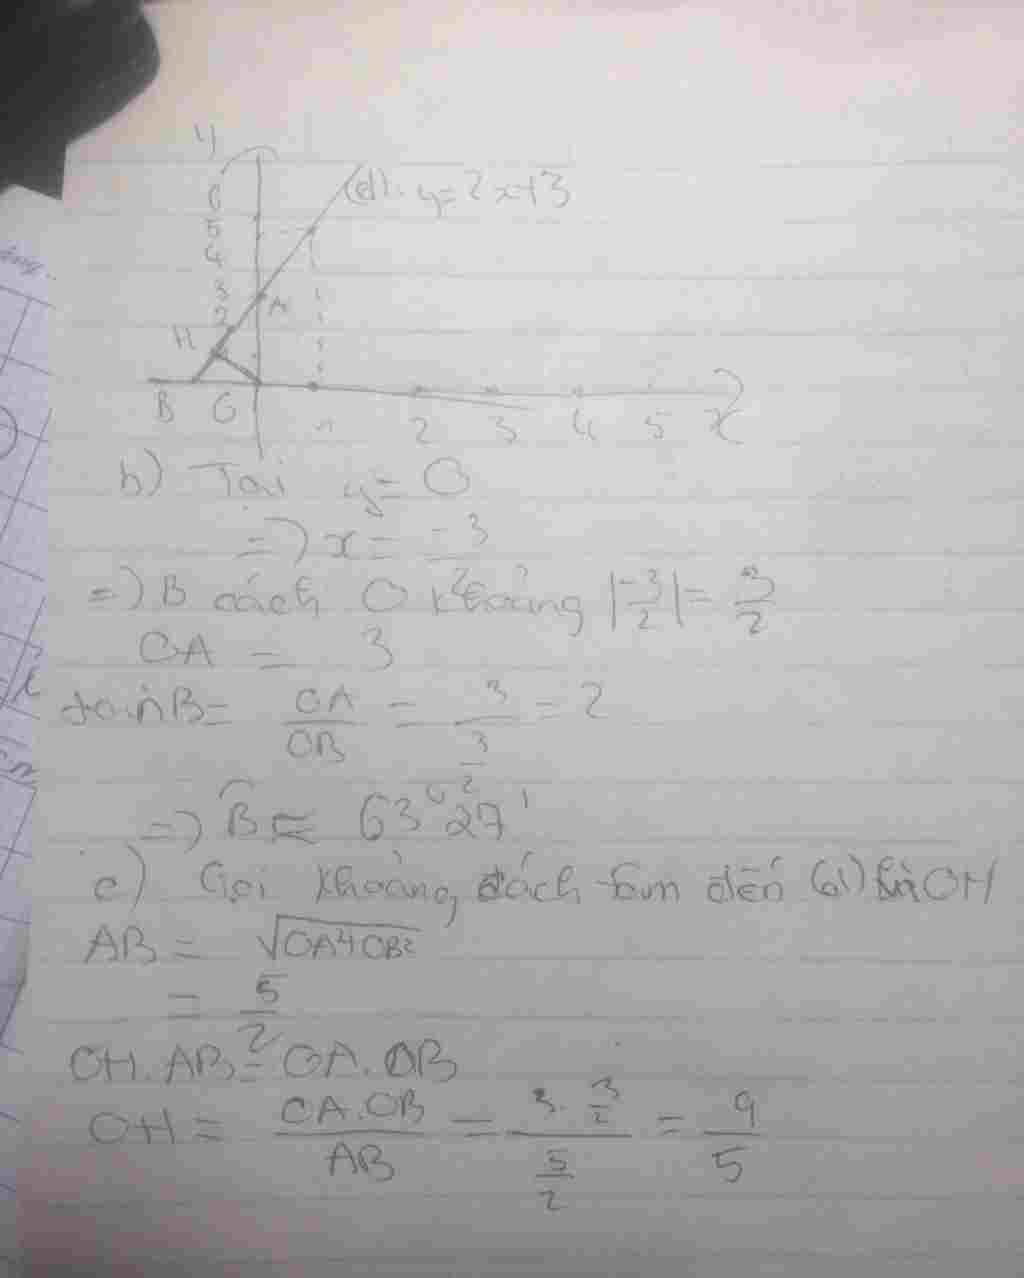 y
(d): y = 2x+3
6
5
4
3
A
2
H
B O 2 3 4 5 x
b) Tại y = 0
=> x = -3/2
=> B cách O khoảng |-3/2| = 3/2
OA = 3
tan B = OA/OB = 3/(3/2) = 2
=> B̂ ≈ 63°27'
c) Gọi khoảng cách từ đến (d) là OH
AB = √(OA²+OB²)
= 5/2
OH.AB = OA.OB
OH = OA.OB/AB = (3.3/2)/(5/2) = 9/5